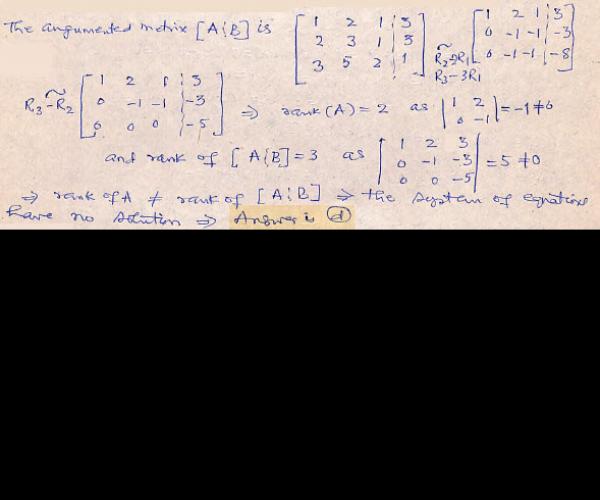 The angumented metrix [A¦B] is [1 2 1 ¦ 3; 2 3 1 ¦ 3; 3 5 2 ¦ 1] ~ R2-2R1 R3-3R1 [1 2 1 ¦ 3; 0 -1 -1 ¦ -3; 0 -1 -1 ¦ -8]
~ R3-R2 [1 2 1 ¦ 3; 0 -1 -1 ¦ -3; 0 0 0 ¦ -5] ⇒ rank(A) = 2 as |1 2; 0 -1| = -1 ≠ 0
and rank of [A¦B] = 3 as |1 2 3; 0 -1 -3; 0 0 -5| = 5 ≠ 0
⇒ rank of A ≠ rank of [A¦B] ⇒ the system of equations
have no solution ⇒ Answer is d